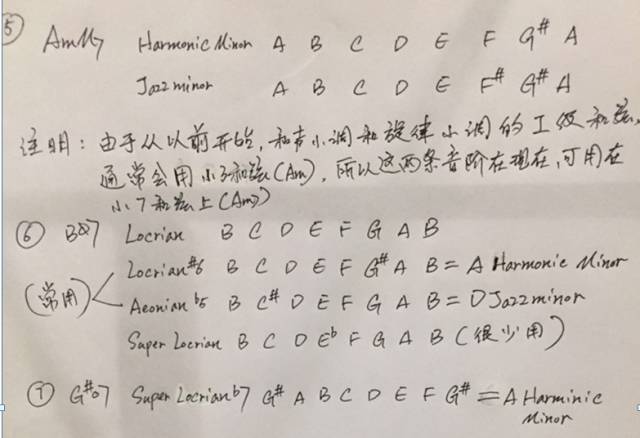 ⑤ AmM7 Harmonic Minor A B C D E F G# A
Jazz minor A B C D E F# G# A
注明：由于从以前开始，和声小调和旋律小调的I级和弦，
通常会用小3和弦(Am)，所以这两条音阶在现在，可用在
小7和弦上(Am7)
⑥ BØ7 Locrian B C D E F G A B
(常用) Locrian#6 B C D E F G# A B = A Harmonic Minor
Aeonian b5 B C# D E F G A B = D Jazz minor
Super Locrian B C D Eb F G A B (很少用)
⑦ G#o7 Super Locrian b7 G# A B C D E F G# = A Harminic
Minor